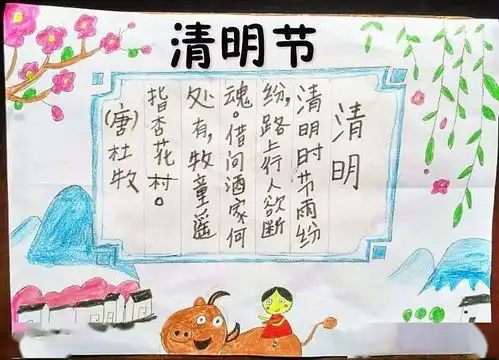 清明节
清明
清明时节雨纷
纷，路上行人欲断
魂。借问酒家何
处有，牧童遥
指杏花村。
（唐）杜牧